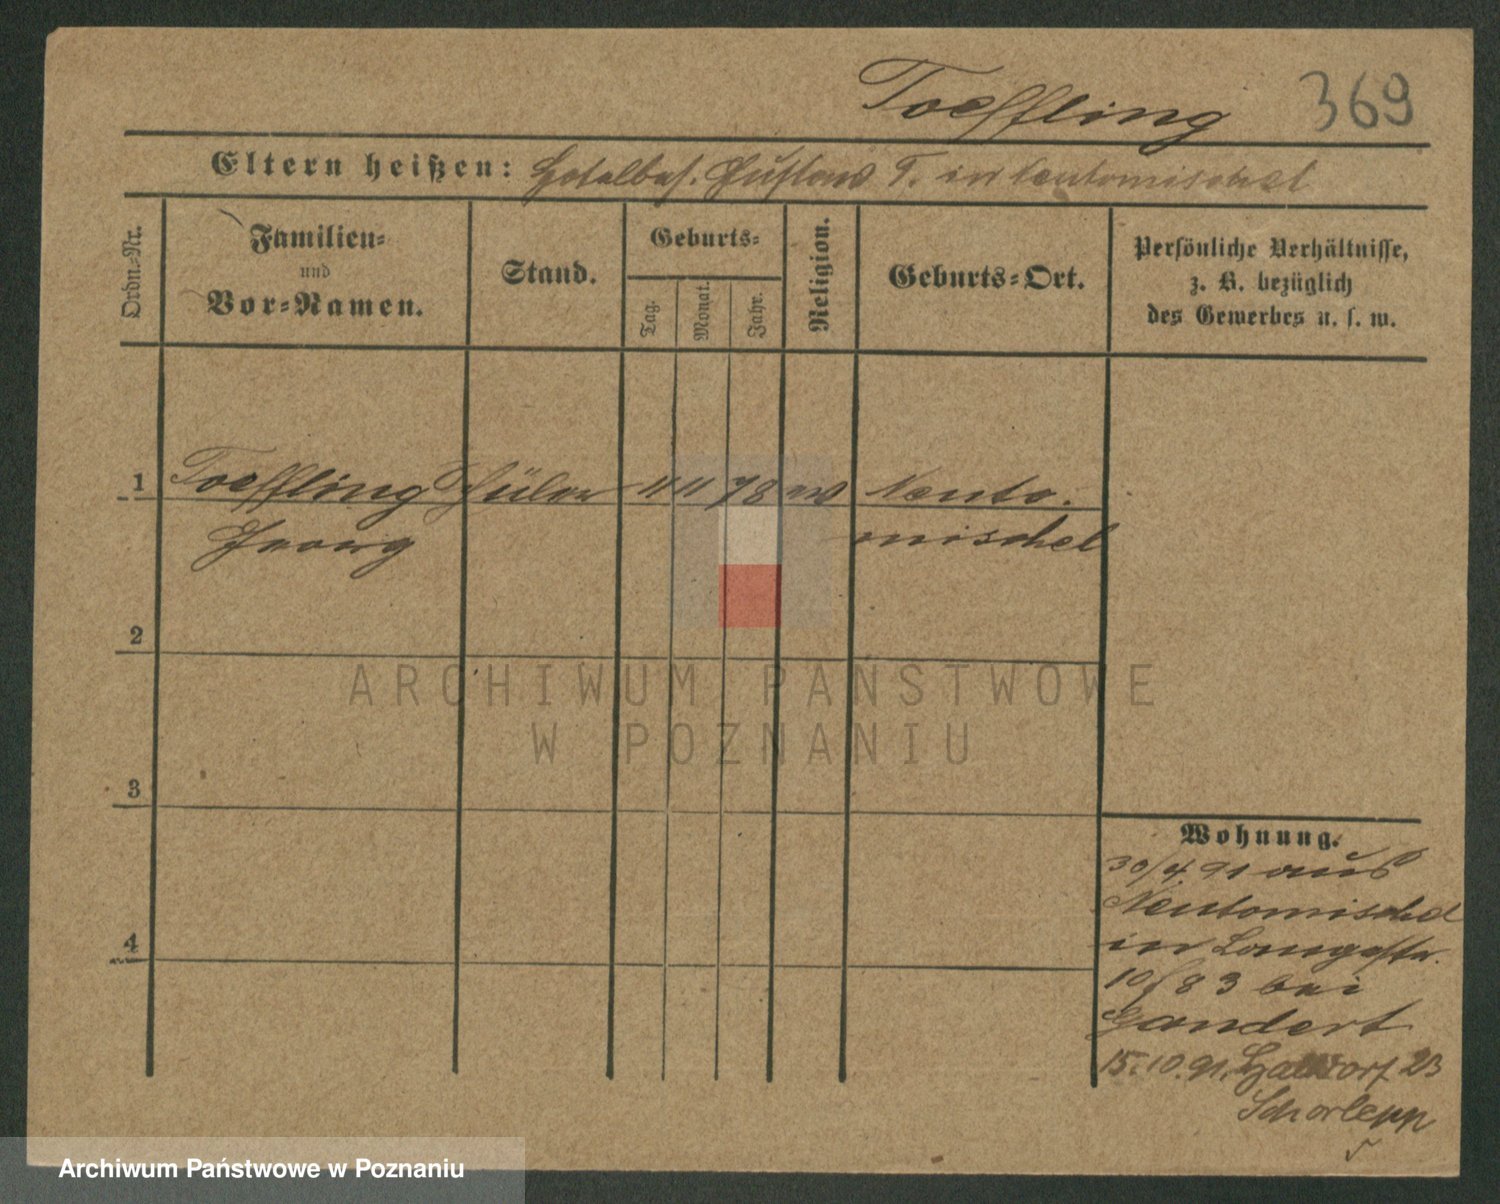 Toeffling 369
Eltern heißen: Hotelbes. Gustav T. in Neutomischel
Ordn.-Nr.
Familien-
und
Vor-Namen.
Stand.
Geburts-
Tag.
Monat.
Jahr.
Religion.
Geburts-Ort.
Persönliche Verhältnisse,
z. B. bezüglich
des Gewerbes u. s. w.
1 Toeffling Schüler 4 11 78 Neuto-
Georg mischel
2
3
4
Wohnung.
30/4 91 aus
Neutomischel
in Langestr.
10/83 bei
Gandert
15.10.91. 23
Schorlepp
ARCHIWUM PAŃSTWOWE
W POZNANIU
Archiwum Państwowe w Poznaniu